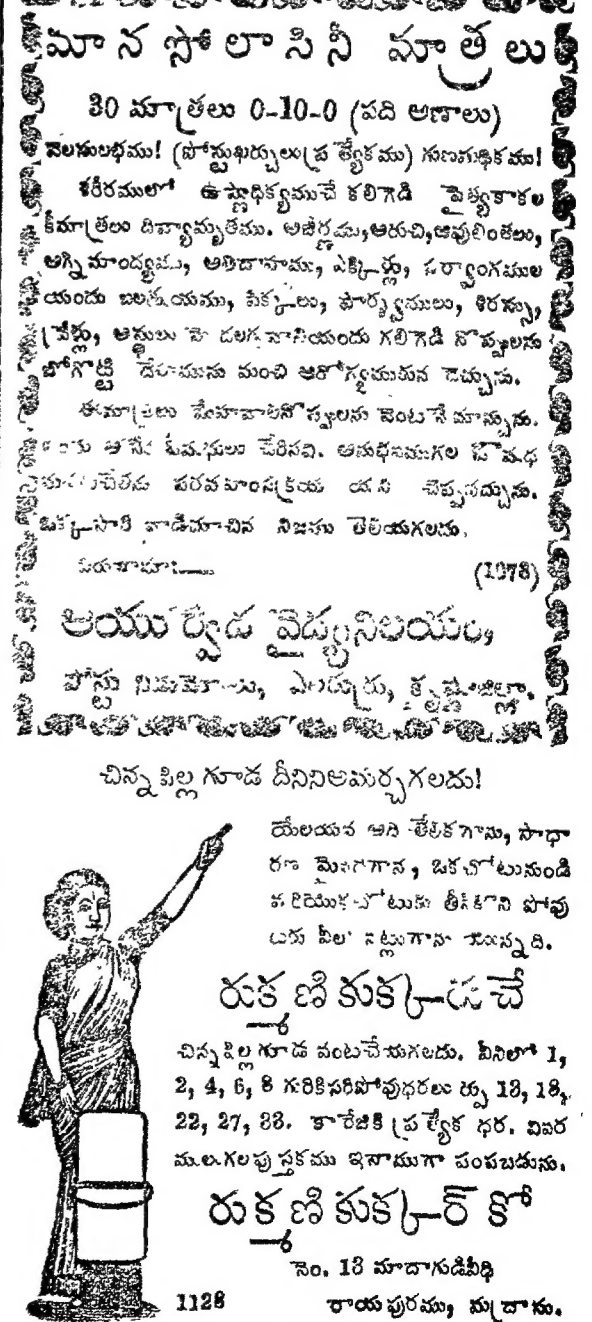 మానసోలాసినీ మాత్రలు
30 మాత్రలు 0-10-0 (పది అణాలు)
వెలసులభము! (పోస్టుఖర్చులు ప్రత్యేకము) గుణమధికము!
శరీరములో ఉష్ణాధిక్యముచే కలిగెడి పైత్యకాకల
కీమాత్రలు దివ్యామృతము. అజీర్ణము, అరుచి, ఆవులింతలు,
అగ్నిమాంద్యము, అతిదాహము, ఎక్కిర్లు, సర్వాంగముల
యందు బలక్షయము, పిక్కలు, పార్శ్వములు, శిరస్సు,
వ్రేళ్లు, అస్థులు మొదలగువానియందు గలిగెడి నొప్పులను
బోగొట్టి దేహమును మంచి ఆరోగ్యమునకు దెచ్చును.
ఈమాత్రలు మేహవాతనొప్పులను వెంటనే మాన్పును.
ఓషధులు చేరినవి. అనుభవముగల
చెప్పవచ్చును.
ఒక్కసారి వాడిచూచిన నిజము తెలియగలదు.
చిరునామా:—
(1078)
ఆయుర్వేద వైద్యనిలయం,
పోస్టు కృష్ణాజిల్లా.
చిన్నపిల్ల గూడ దీనినిఅమర్చగలదు!
యేలయన అది తేలికగాను, సాధా
రణ మైనదిగాన, ఒకచోటునుండి
మరియొకచోటుకు తీసికొని పోవు
టకు వీలగునట్లుగాను యున్నది.
రుక్మణికుక్కరుచే
చిన్నపిల్ల గూడ వంటచేయగలదు. వీనిలో 1,
2, 4, 6, 8 గురికిసరిపోవుధరలు రు 13, 18,
22, 27, 33. కారేజికి ప్రత్యేక ధర. వివర
ములుగలపుస్తకము ఇనాముగా పంపబడును.
రుక్మణికుక్కర్ కో
నెం. 13 మాదాగుడివీధి
1128 రాయపురము, మద్రాసు.